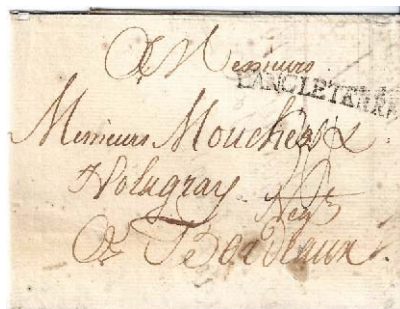 A Messieurs
D'ANGLETERRE
Messieurs Mouchess &
Nolugray Negts
A Bordeaux